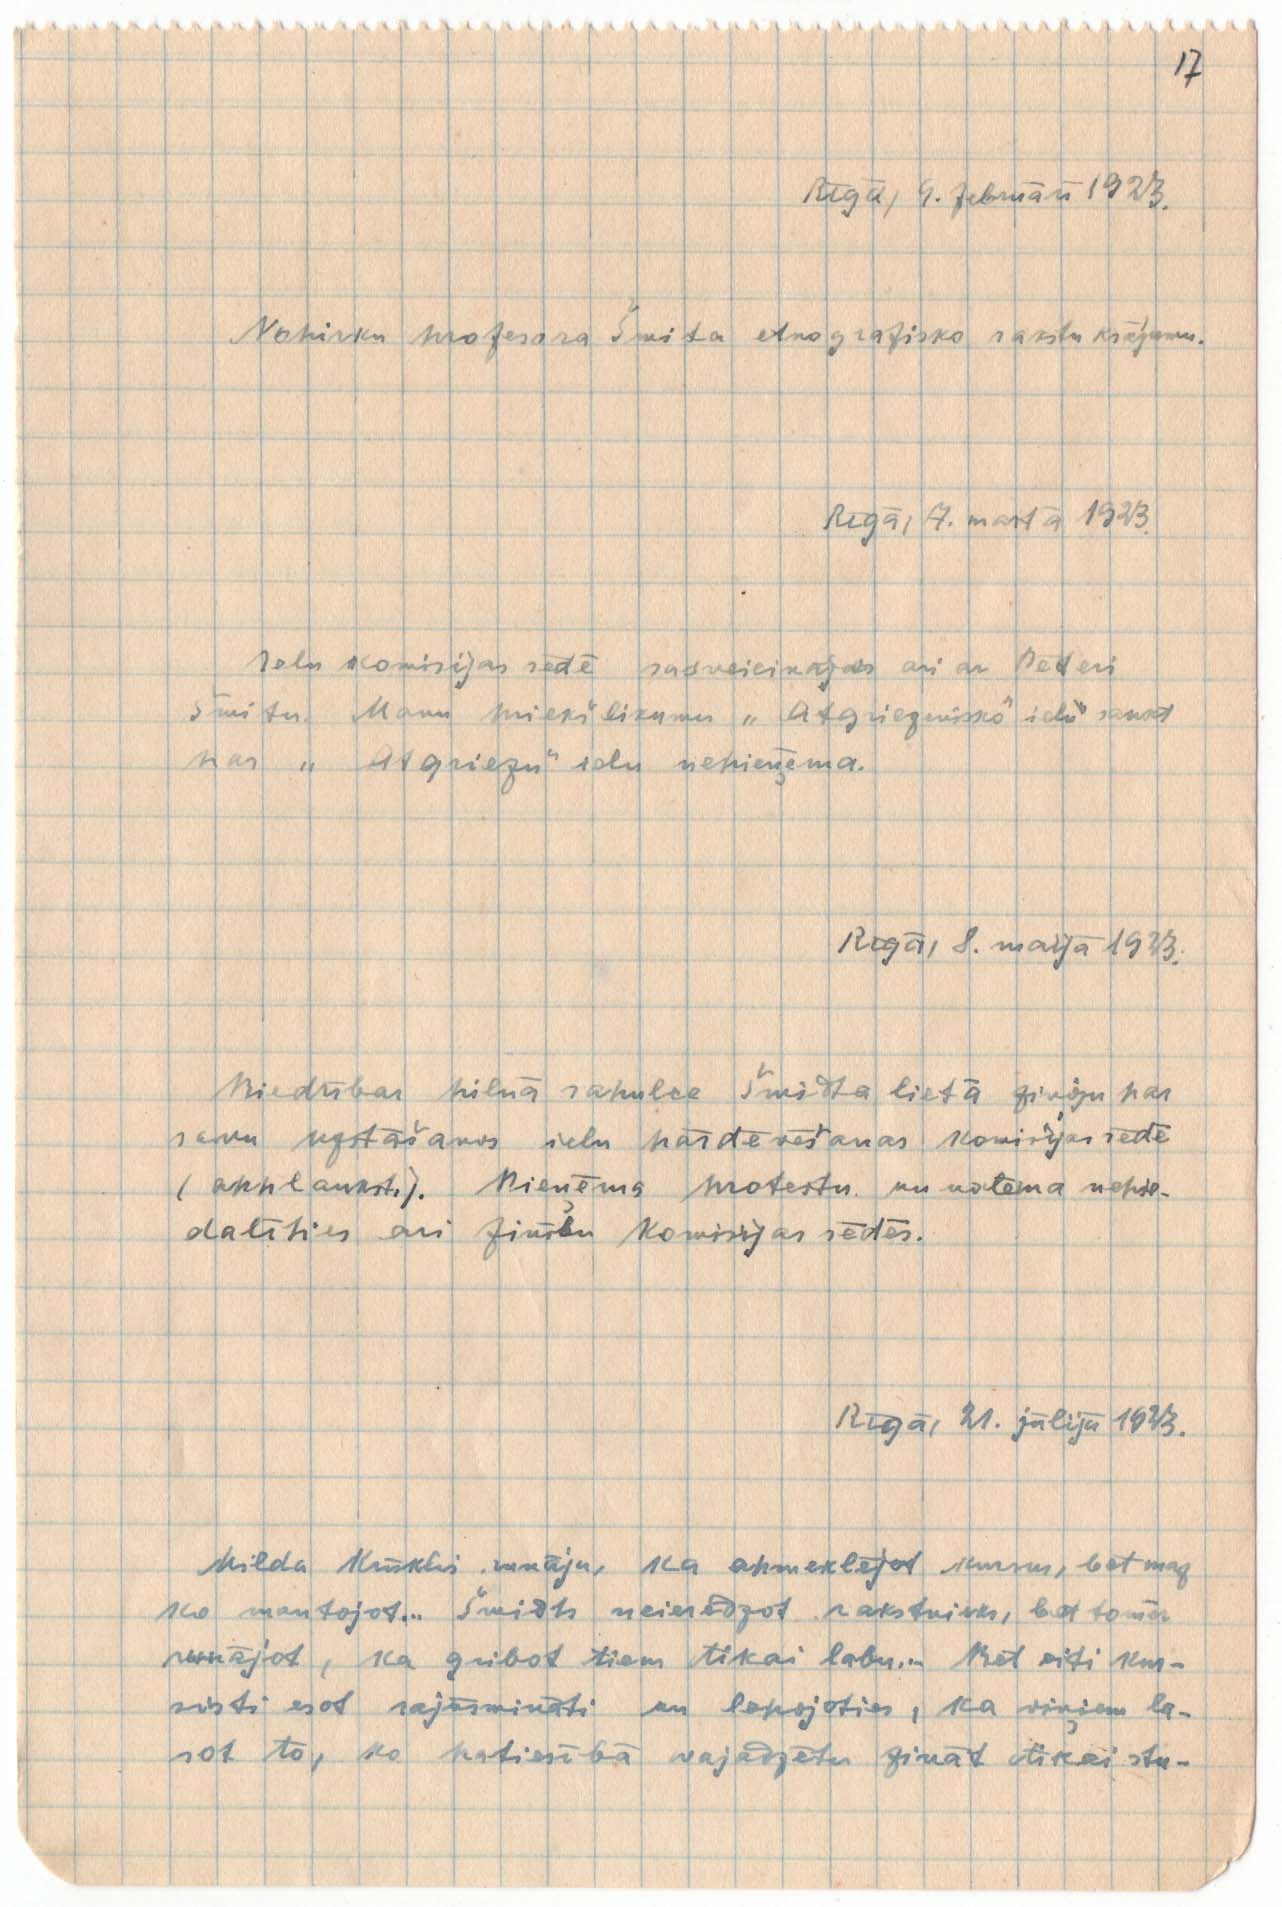 17
Rīgā, 9. februārī 1923.
Nopirku profesora Šmita etnografisko rakstu krājumu.
Rīgā, 7. martā 1923.
Ielu komisijas sēdē sasveicinājos ari ar Pēteri
Šmitu. Manu priekšlikumu „Atgriezenisko" ielu saukt
par „Atgriezu" ielu nepieņēma.
Rīgā, 8. maijā 1923.
Biedrības pilnā sapulce Šmidta lietā ziņoju par
savu uzstāšanos ielu pārdēvēšanas komisijas sēdē
(applaukst.). Pieņēma protestu un nolēma nepie-
dalīties ari zināšu komisijas sēdēs.
Rīgā, 21. jūlijā 1923.
Milda Krūklis runāja, ka apmeklējot kursus, bet maz
ko mantojot... Šmidts neieredzot rakstnieku, bet tomēr
runājot, ka gribot tiem tikai labu... Bet citi kur-
sisti esot sajūsmināti un lepojoties, ka viņiem la-
sot to, ko patiesībā vajadzētu zināt tikai stu-